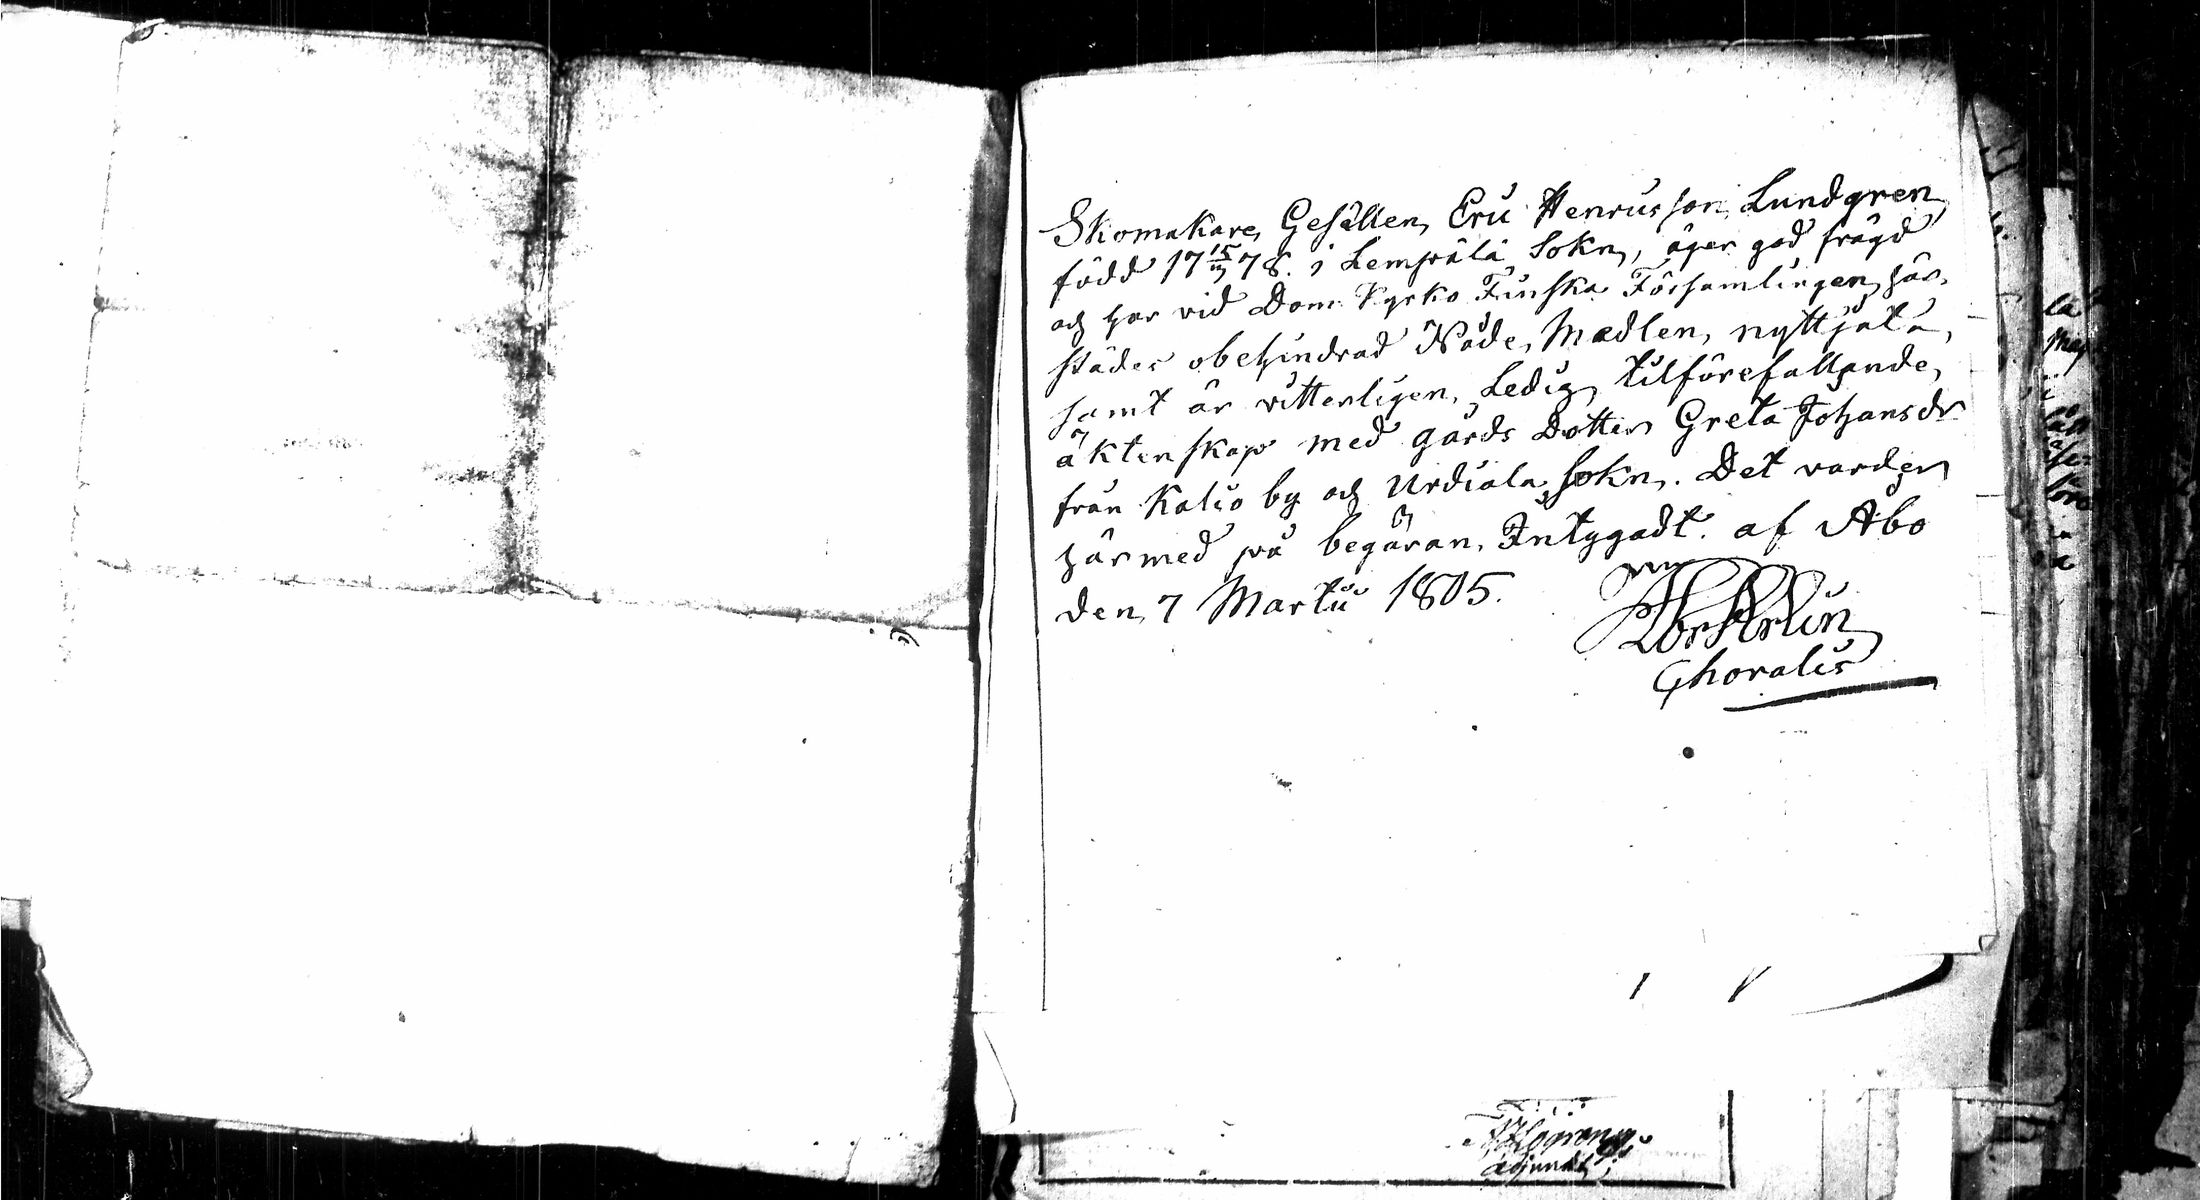 Skomakare Gesällen Eric Henricsson Lundgren
född 17 15/11 78. i Lempälä Sokn, äger god frägd
och har vid Dom Kyrko Finska Församlingen här-
städes obehindrad Nåde Medlen nyttjata,
samt är vitterligen Ledig tilförefallande
äktenskap med gårds Dotter Greta Johansdr
från Kalio by och Urdiala Sokn. Det varder
härmed på begäran Intygadt. af Åbo
den 7 Martii 1805.
Choralis